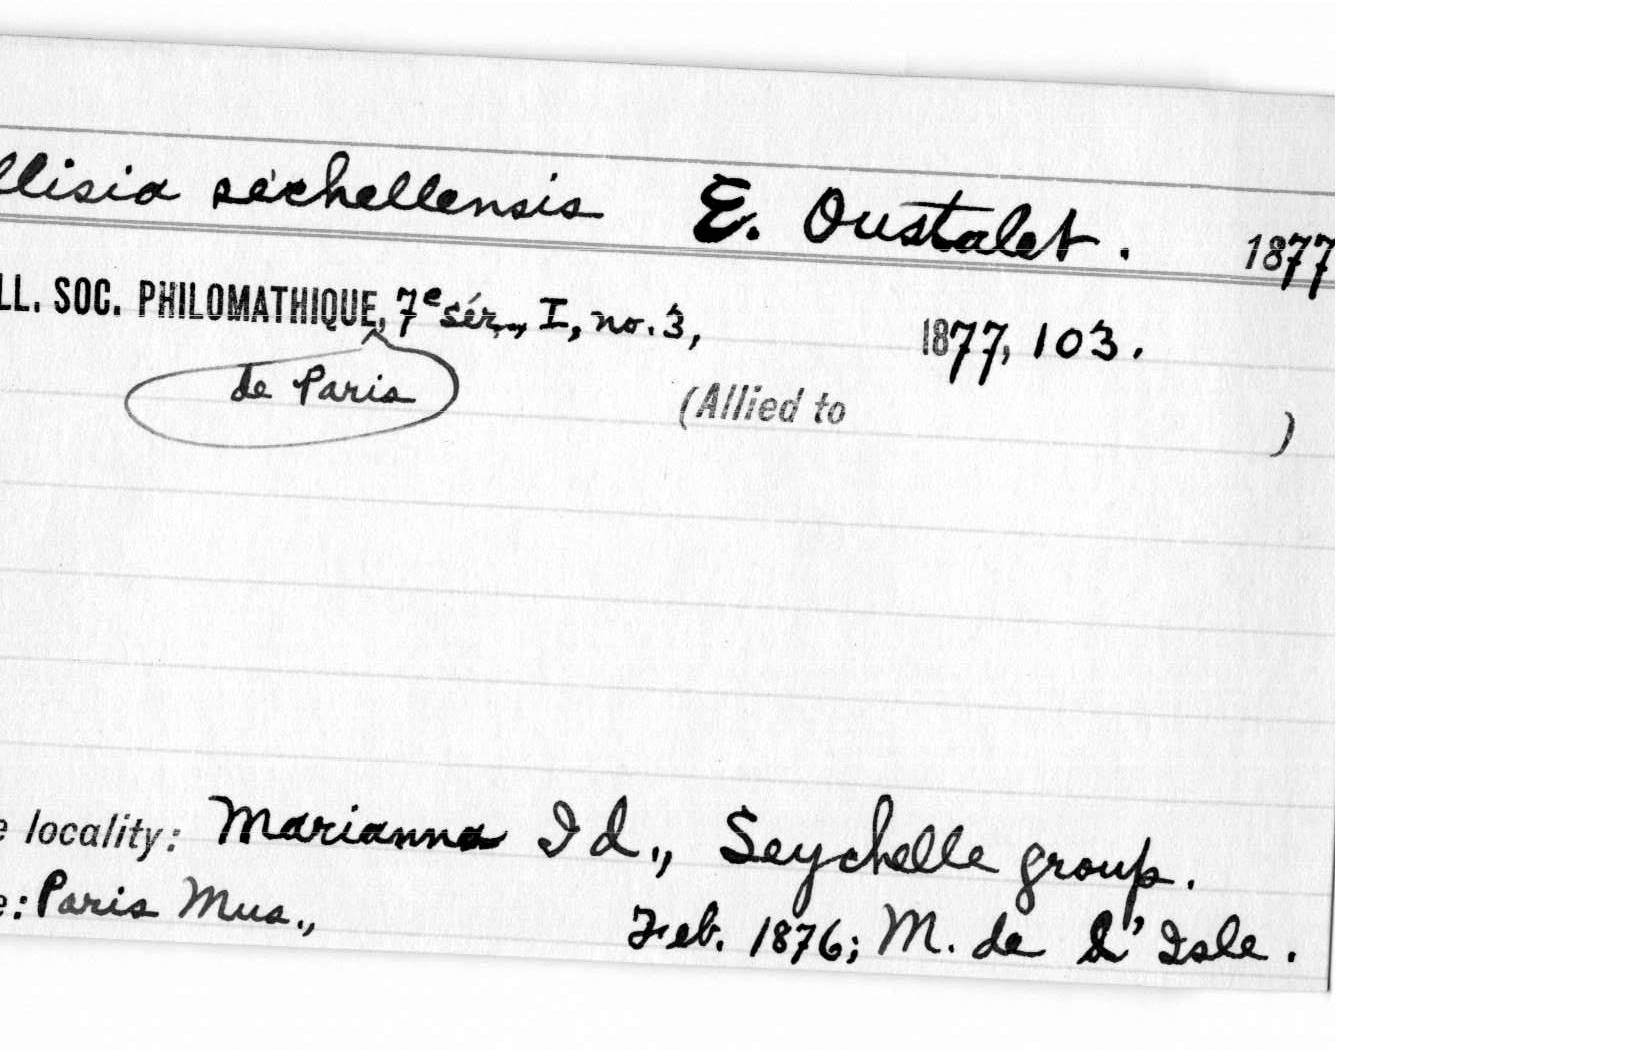 llisia séchellensis E. Oustalet. 1877
LL. SOC. PHILOMATHIQUE, 7e sér., I, no. 3, 1877, 103.
de Paris
(Allied to )
e locality: Marianna Id., Seychelle group.
e: Paris Mus., Feb. 1876; M. de L'Isle.